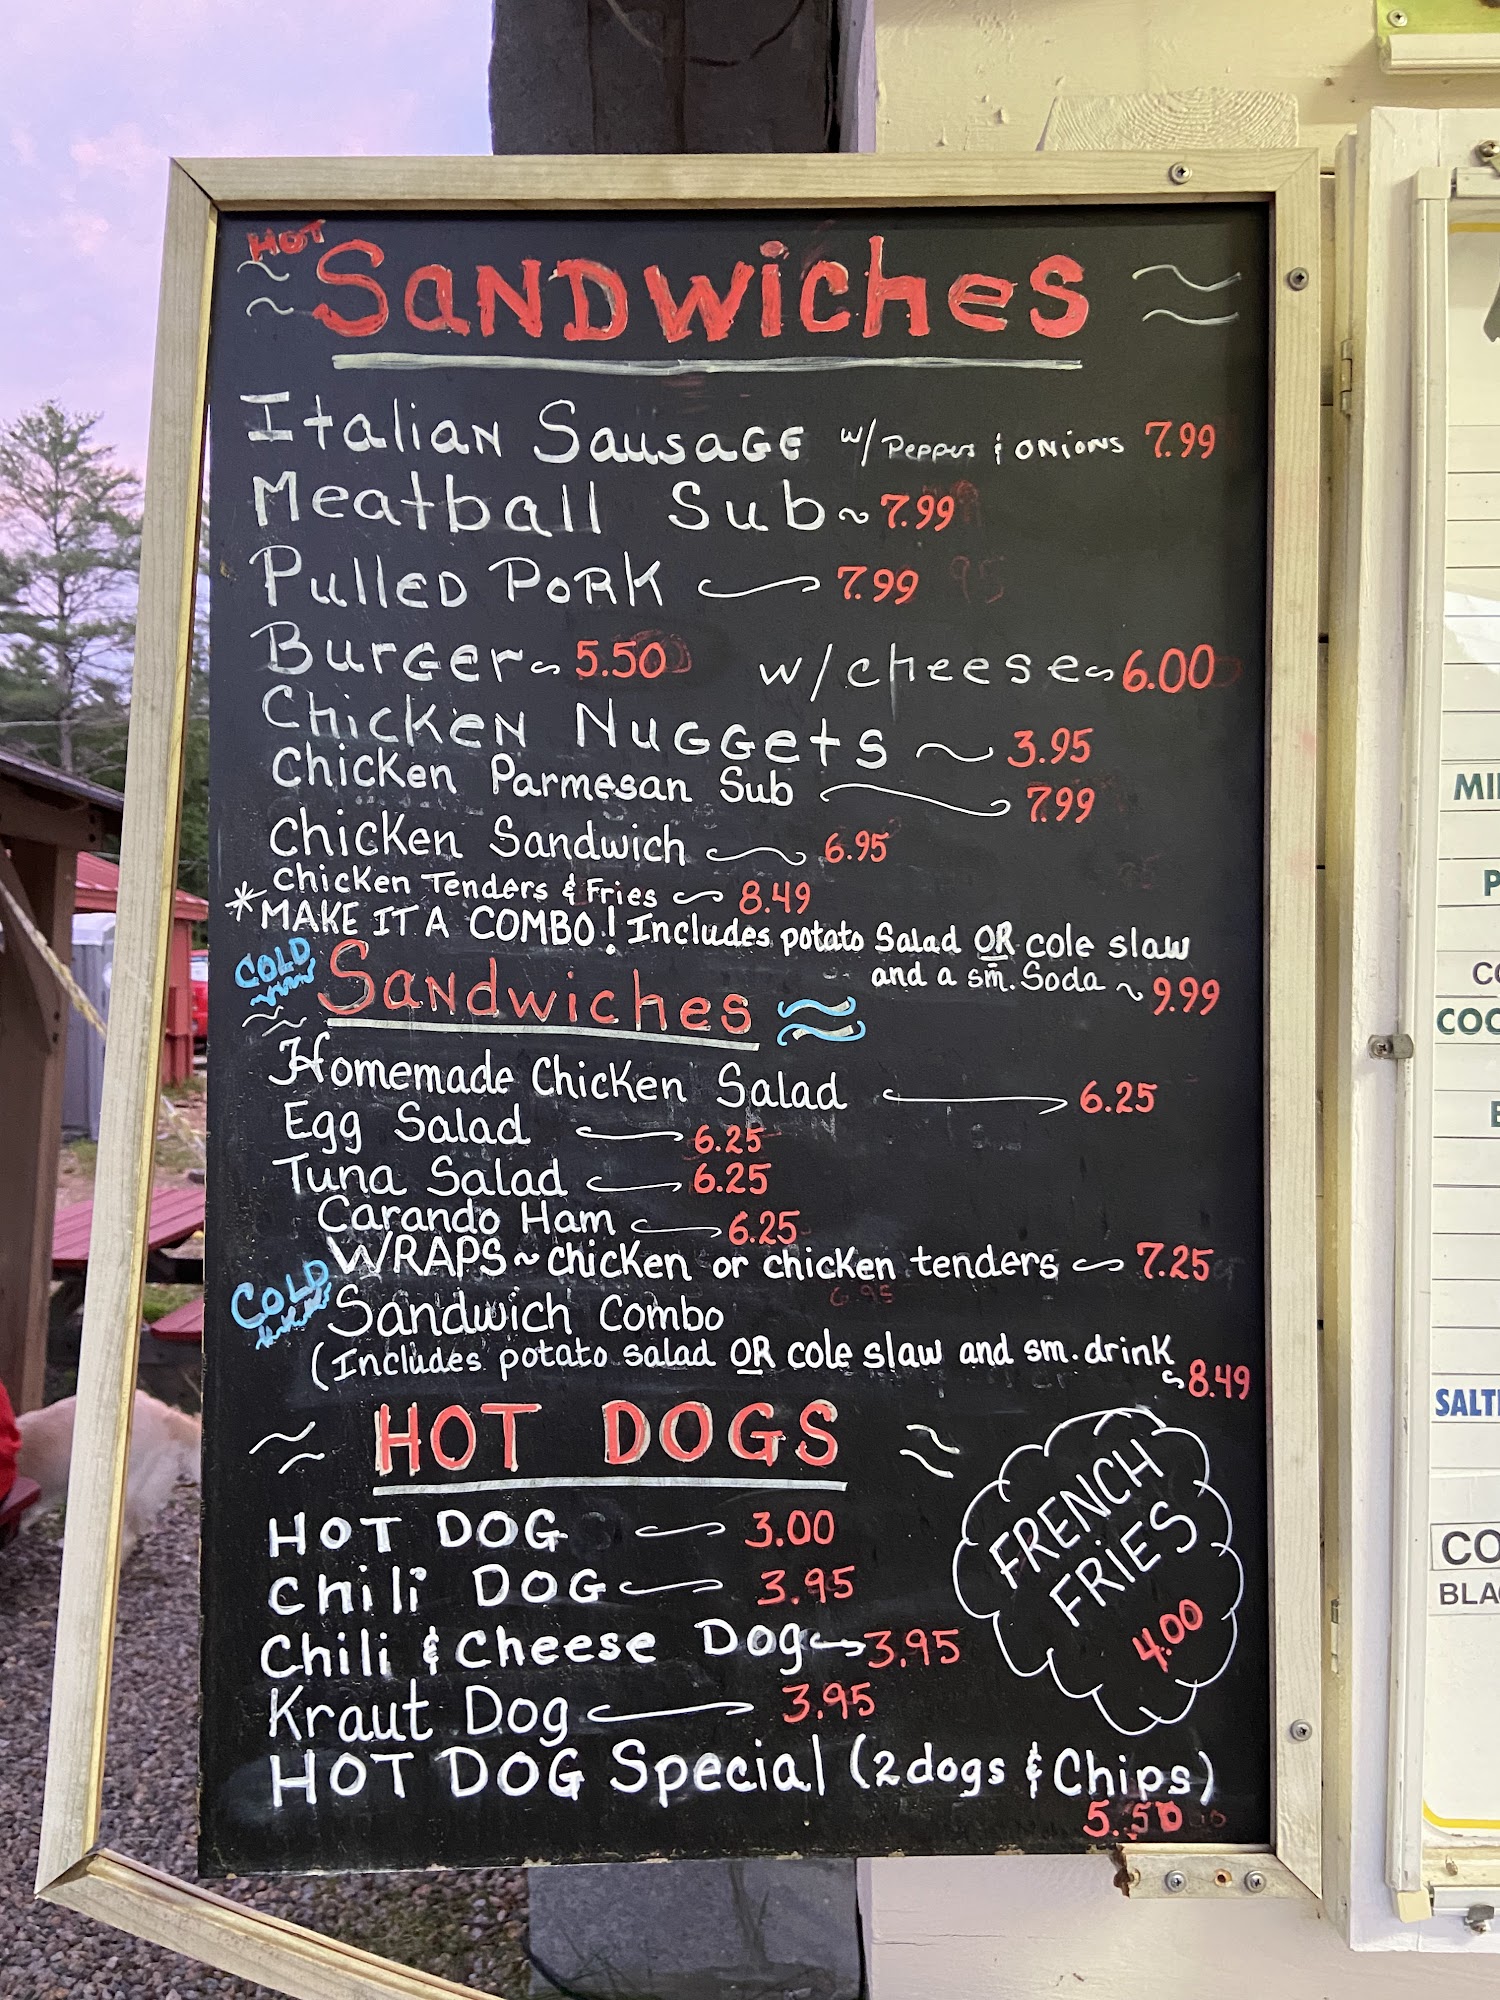 HOT
SANDWicheS
Italian Sausage w/ Peppers & onions 7.99
Meatball Sub ~ 7.99
Pulled Pork 7.99
Burger ~ 5.50 w/cheese ~ 6.00
Chicken Nuggets ~ 3.95
Chicken Parmesan Sub 7.99
Chicken Sandwich 6.95
Chicken Tenders & Fries 8.49
*MAKE IT A COMBO! Includes potato Salad OR cole slaw
and a sm. Soda ~ 9.99
COLD
Sandwiches
Homemade Chicken Salad 6.25
Egg Salad 6.25
Tuna Salad 6.25
Carando Ham 6.25
WRAPS ~ chicken or chicken tenders 7.25
COLD
Sandwich Combo
(Includes potato salad OR cole slaw and sm. drink
8.49
HOT DOGS
HOT DOG 3.00
Chili DOG 3.95
Chili & Cheese Dog 3.95
Kraut Dog 3.95
HOT DOG Special (2 dogs & Chips)
5.50
FRENCH
FRIES
4.00
SALT
CO
BLA